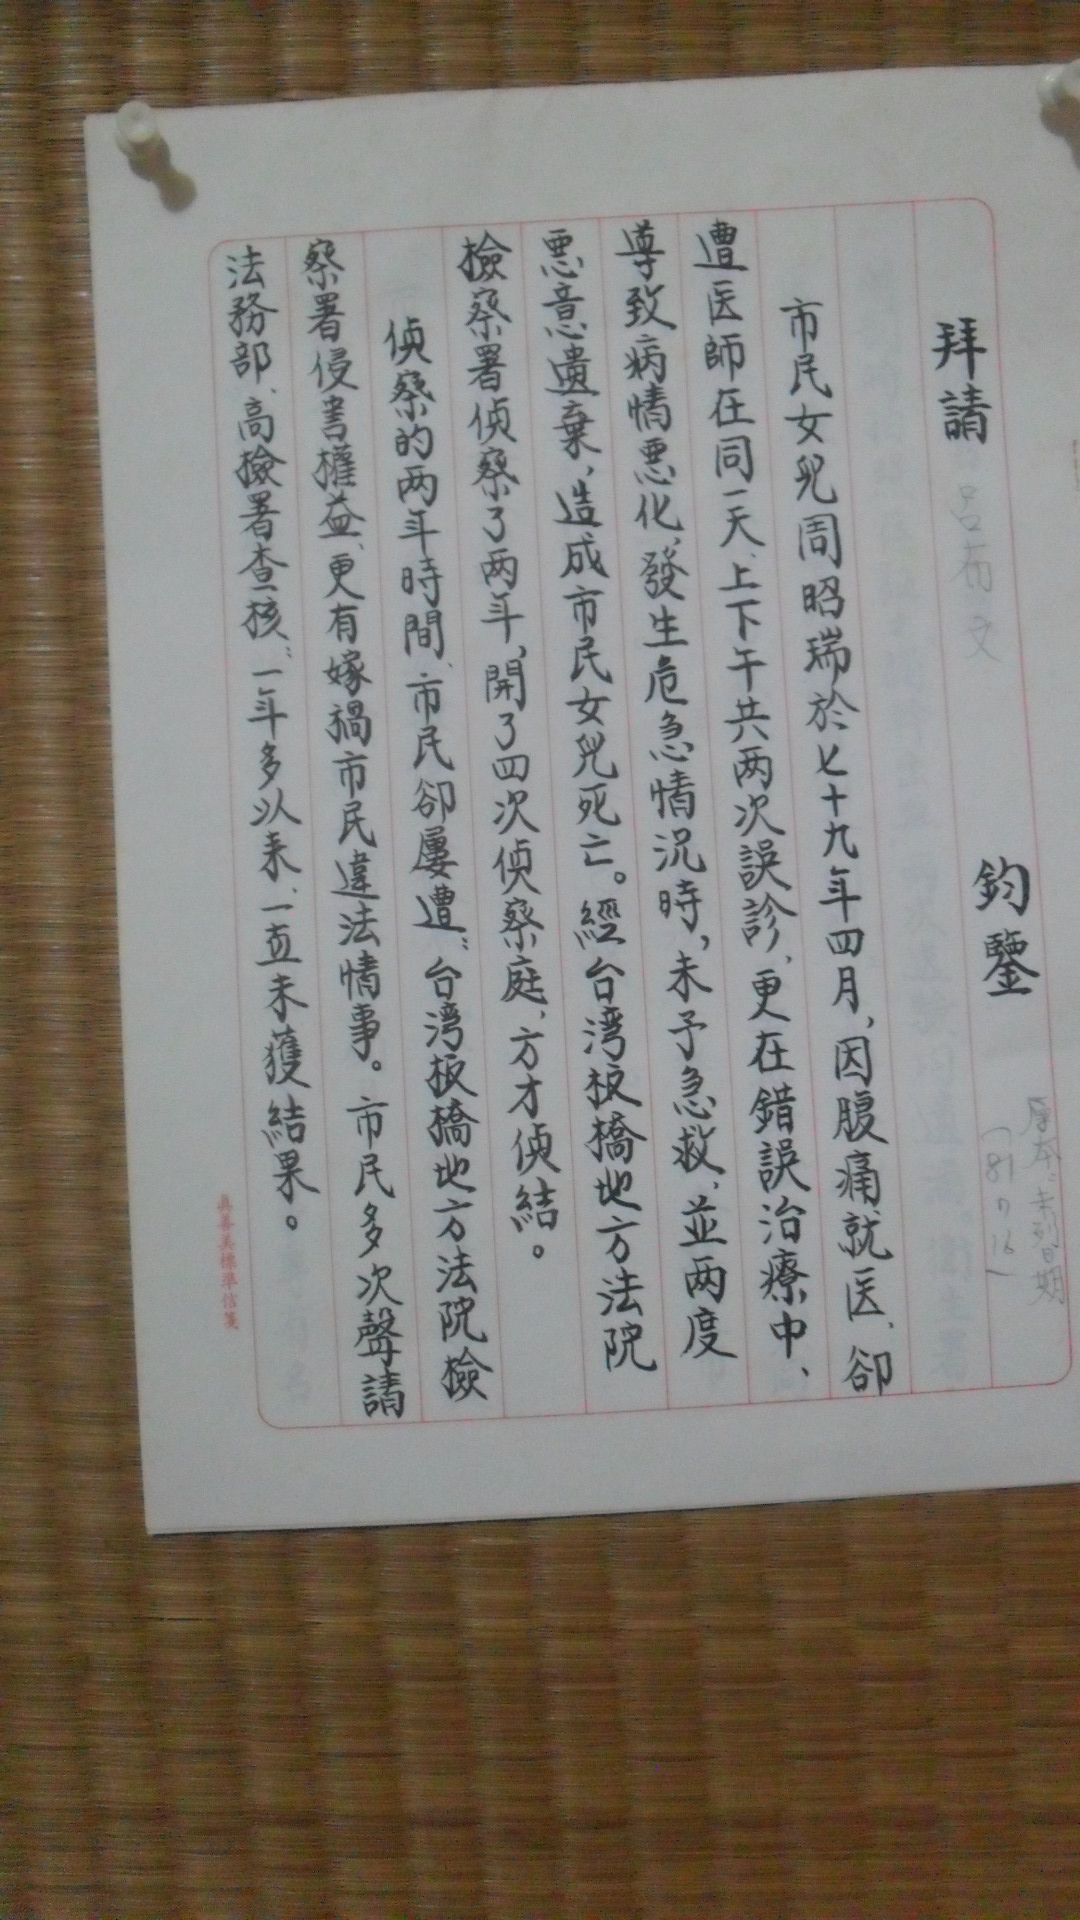 拜請　　鈞鑒
原本：未列日期
(81 7 16)
市民女兒周昭瑞於七十九年四月，因腹痛就医、卻
遭医師在同一天、上下午共両次誤診、更在錯誤治療中、
導致病情悪化、發生危急情況時，未予急救、並両度
悪意遺棄，造成市民女兒死亡。經台湾板橋地方法院
檢察署偵察了両年，開了四次偵察庭、方才偵結。
偵察的両年時間、市民卻屢遭：台湾板橋地方法院檢
察署侵害權益、更有嫁禍市民違法情事。市民多次聲請
法務部、高檢署查核：一年多以来、一直未獲結果。
真善美標準信箋